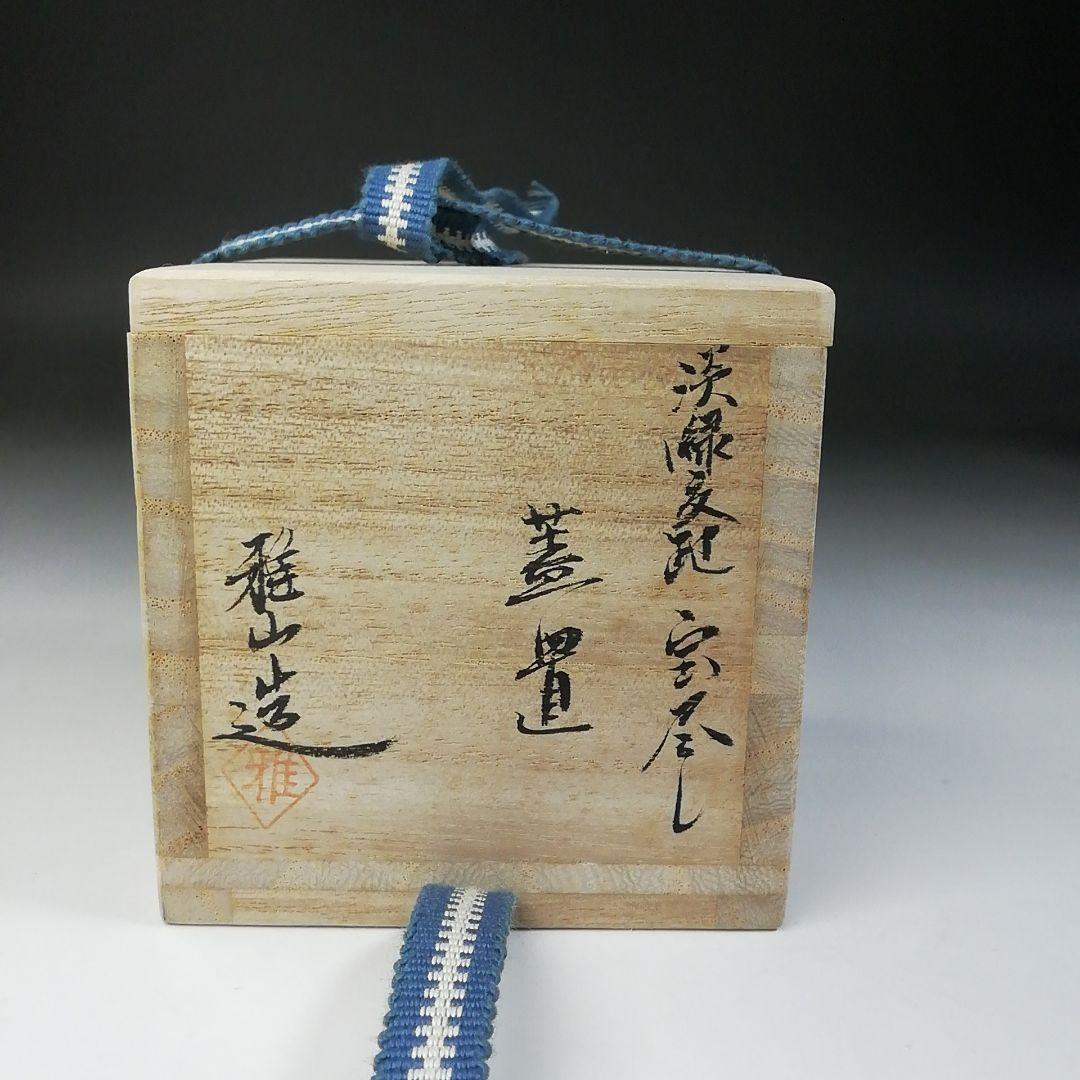 淡緑交趾 宝尽し
蓋置
雅山造
雅